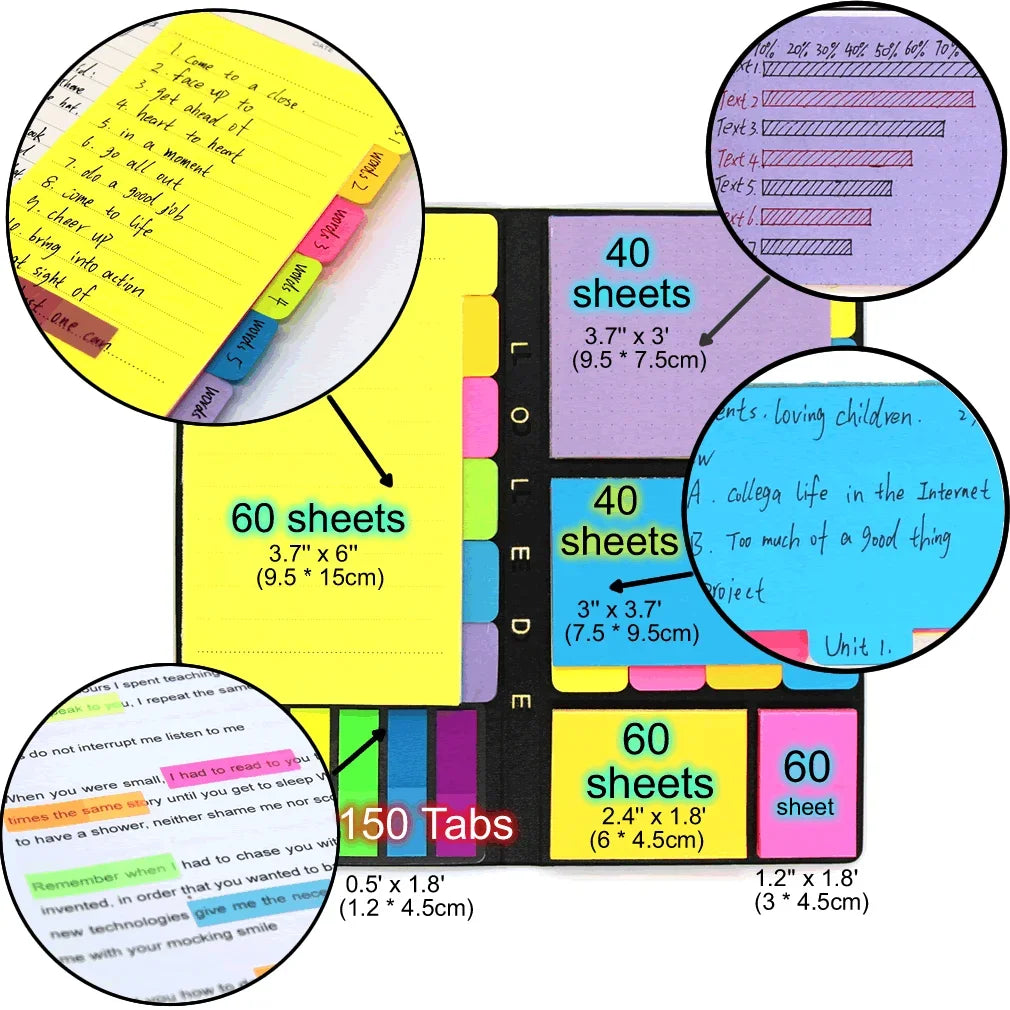 DATE
1. Come to a close
2. face up to
3. get ahead of
4. heart to heart
5. in a moment
6. go all out
7. do a good job
8. come to life
9. cheer up
10. bring into action
sight of
one can
words 2
words 3
words 4
words 5
words
10% 20% 30% 40% 50% 60% 70%
Text 1.
Text 2
Text 3.
Text 4.
Text 5.
Text 6.
7
40
sheets
3.7" x 3'
(9.5 * 7.5cm)
LOLEDE
60 sheets
3.7" x 6"
(9.5 * 15cm)
40
sheets
3" x 3.7'
(7.5 * 9.5cm)
ents. loving children. 2,
w
A. collega life in the Internet
B. Too much of a good thing
project
Unit 1.
ours I spent teaching
eak to you, I repeat the same
do not interrupt me listen to me
When you were small, I had to read to you
times the same story until you get to sleep
to have a shower, neither shame me nor
Remember when I had to chase you
invented, in order that you wanted to
new technologies give me the nece
me with your mocking smile
you how to
150 Tabs
0.5' x 1.8'
(1.2 * 4.5cm)
60
sheets
2.4" x 1.8'
(6 * 4.5cm)
60
sheet
1.2" x 1.8'
(3 * 4.5cm)